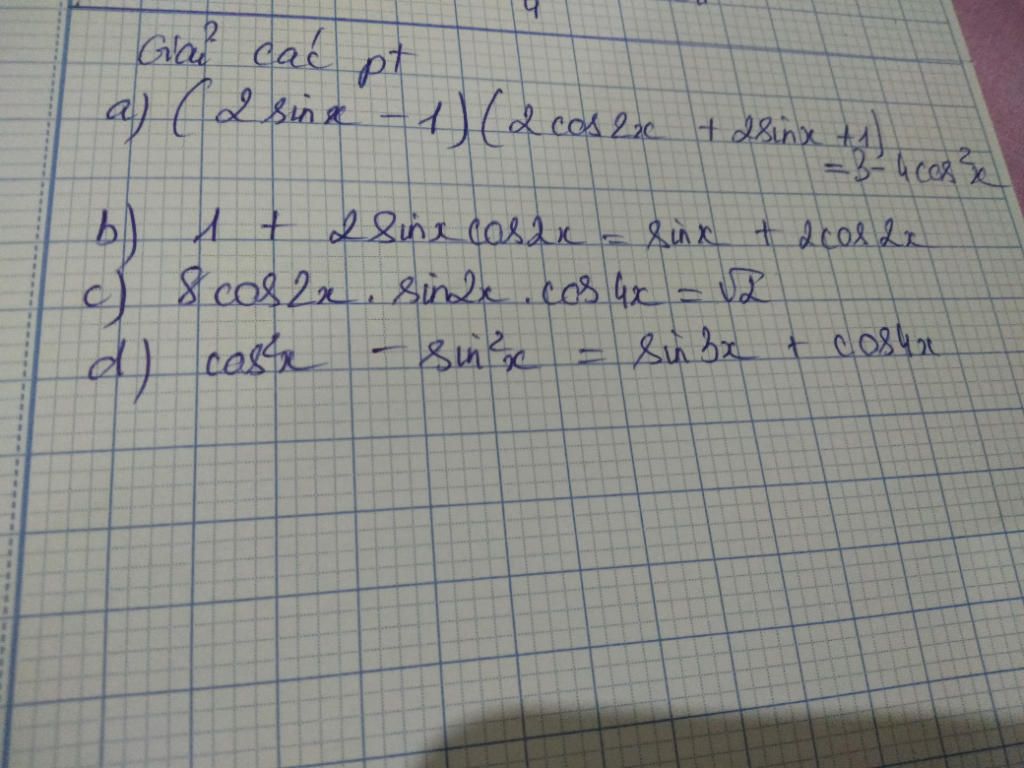 Giải các pt
a) (2 sinx - 1)(2 cos2x + 2sinx + 1)
= 3 - 4cos²x
b) 1 + 2 sinx cos2x = sinx + 2cos2x
c) 8cos2x . sin2x . cos4x = √2
d) cos²x - sin²x = sin3x + cos4x